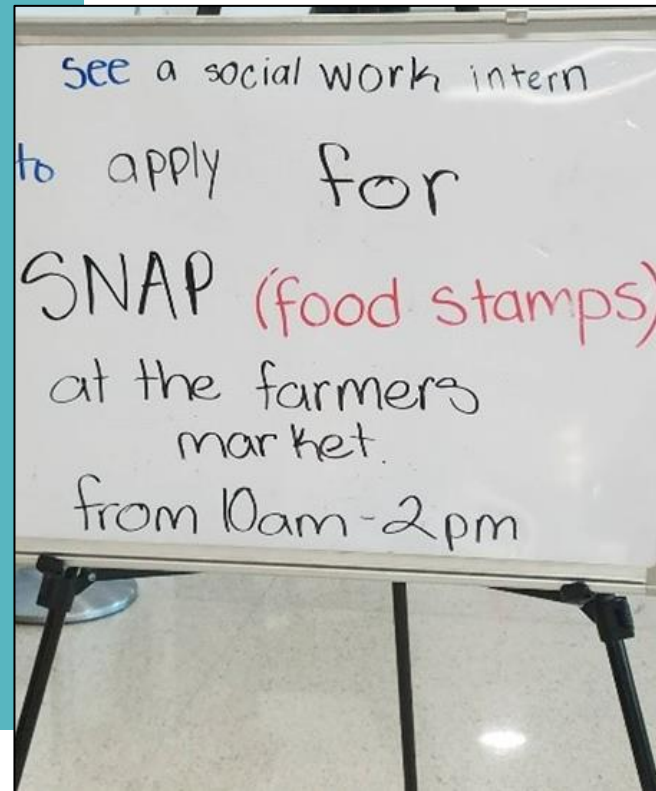 See a social work intern
to apply for
SNAP (food stamps)
at the farmers
market.
from 10am-2pm